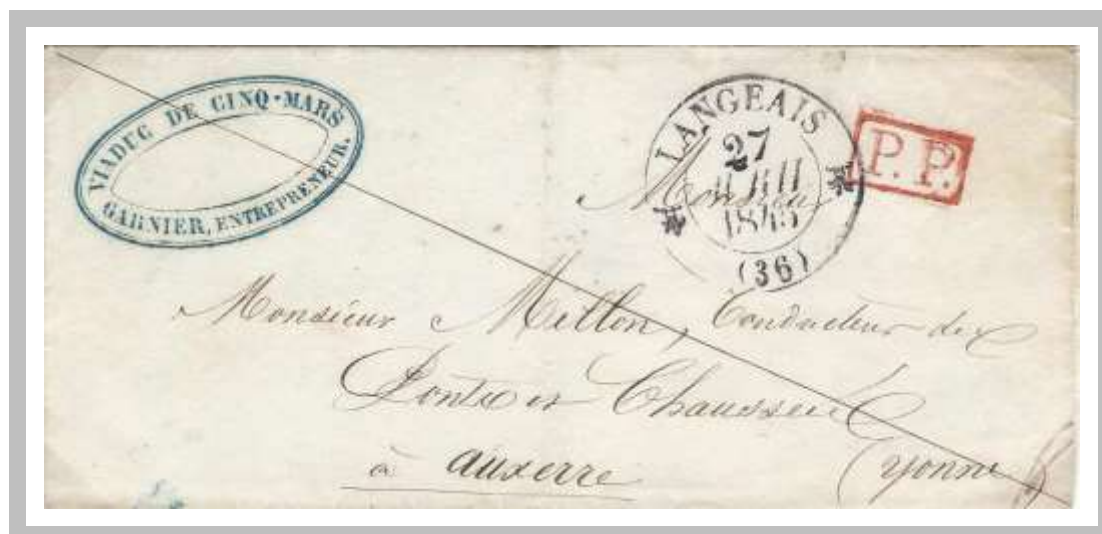 VIADUC DE CINQ-MARS
GARNIER, ENTREPRENEUR.
LANGEAIS
27
1845
(36)
P.P.
Monsieur
Monsieur Millon, Conducteur des
Ponts et Chaussées
à Auxerre
(Yonne)